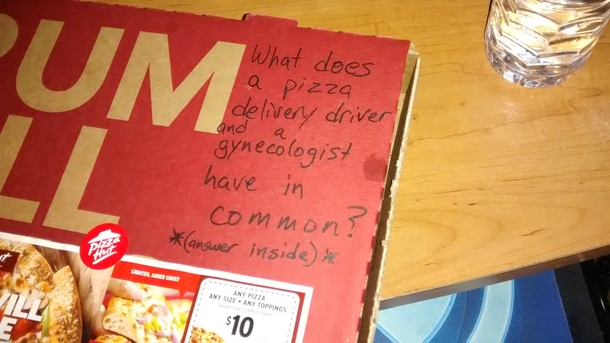 RUM
LL
What does
a pizza
delivery driver
and a
gynecologist
have in
common?
*(answer inside)*
Pizza
Hut
LIGHTER, AIRIER CRUST
ANY PIZZA
ANY SIZE • ANY TOPPINGS
$10
WILL